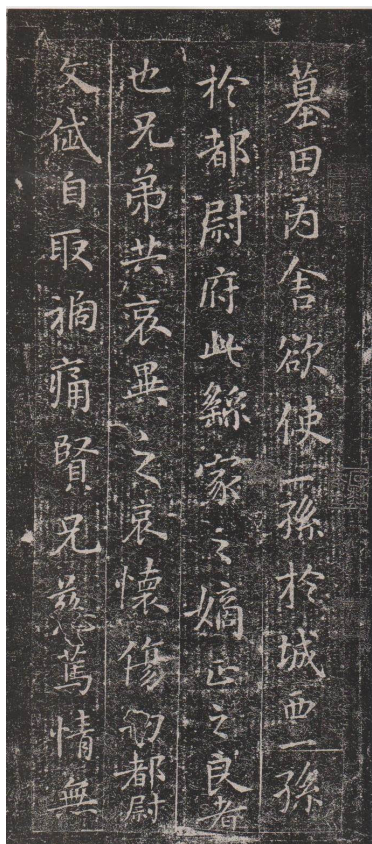 墓田丙舍欲使一孫於城西一孫
於都尉府此繇家之嫡正之良者
也兄弟共哀異之哀懷傷切都尉
文岱自取禍痛賢兄慈篤情無